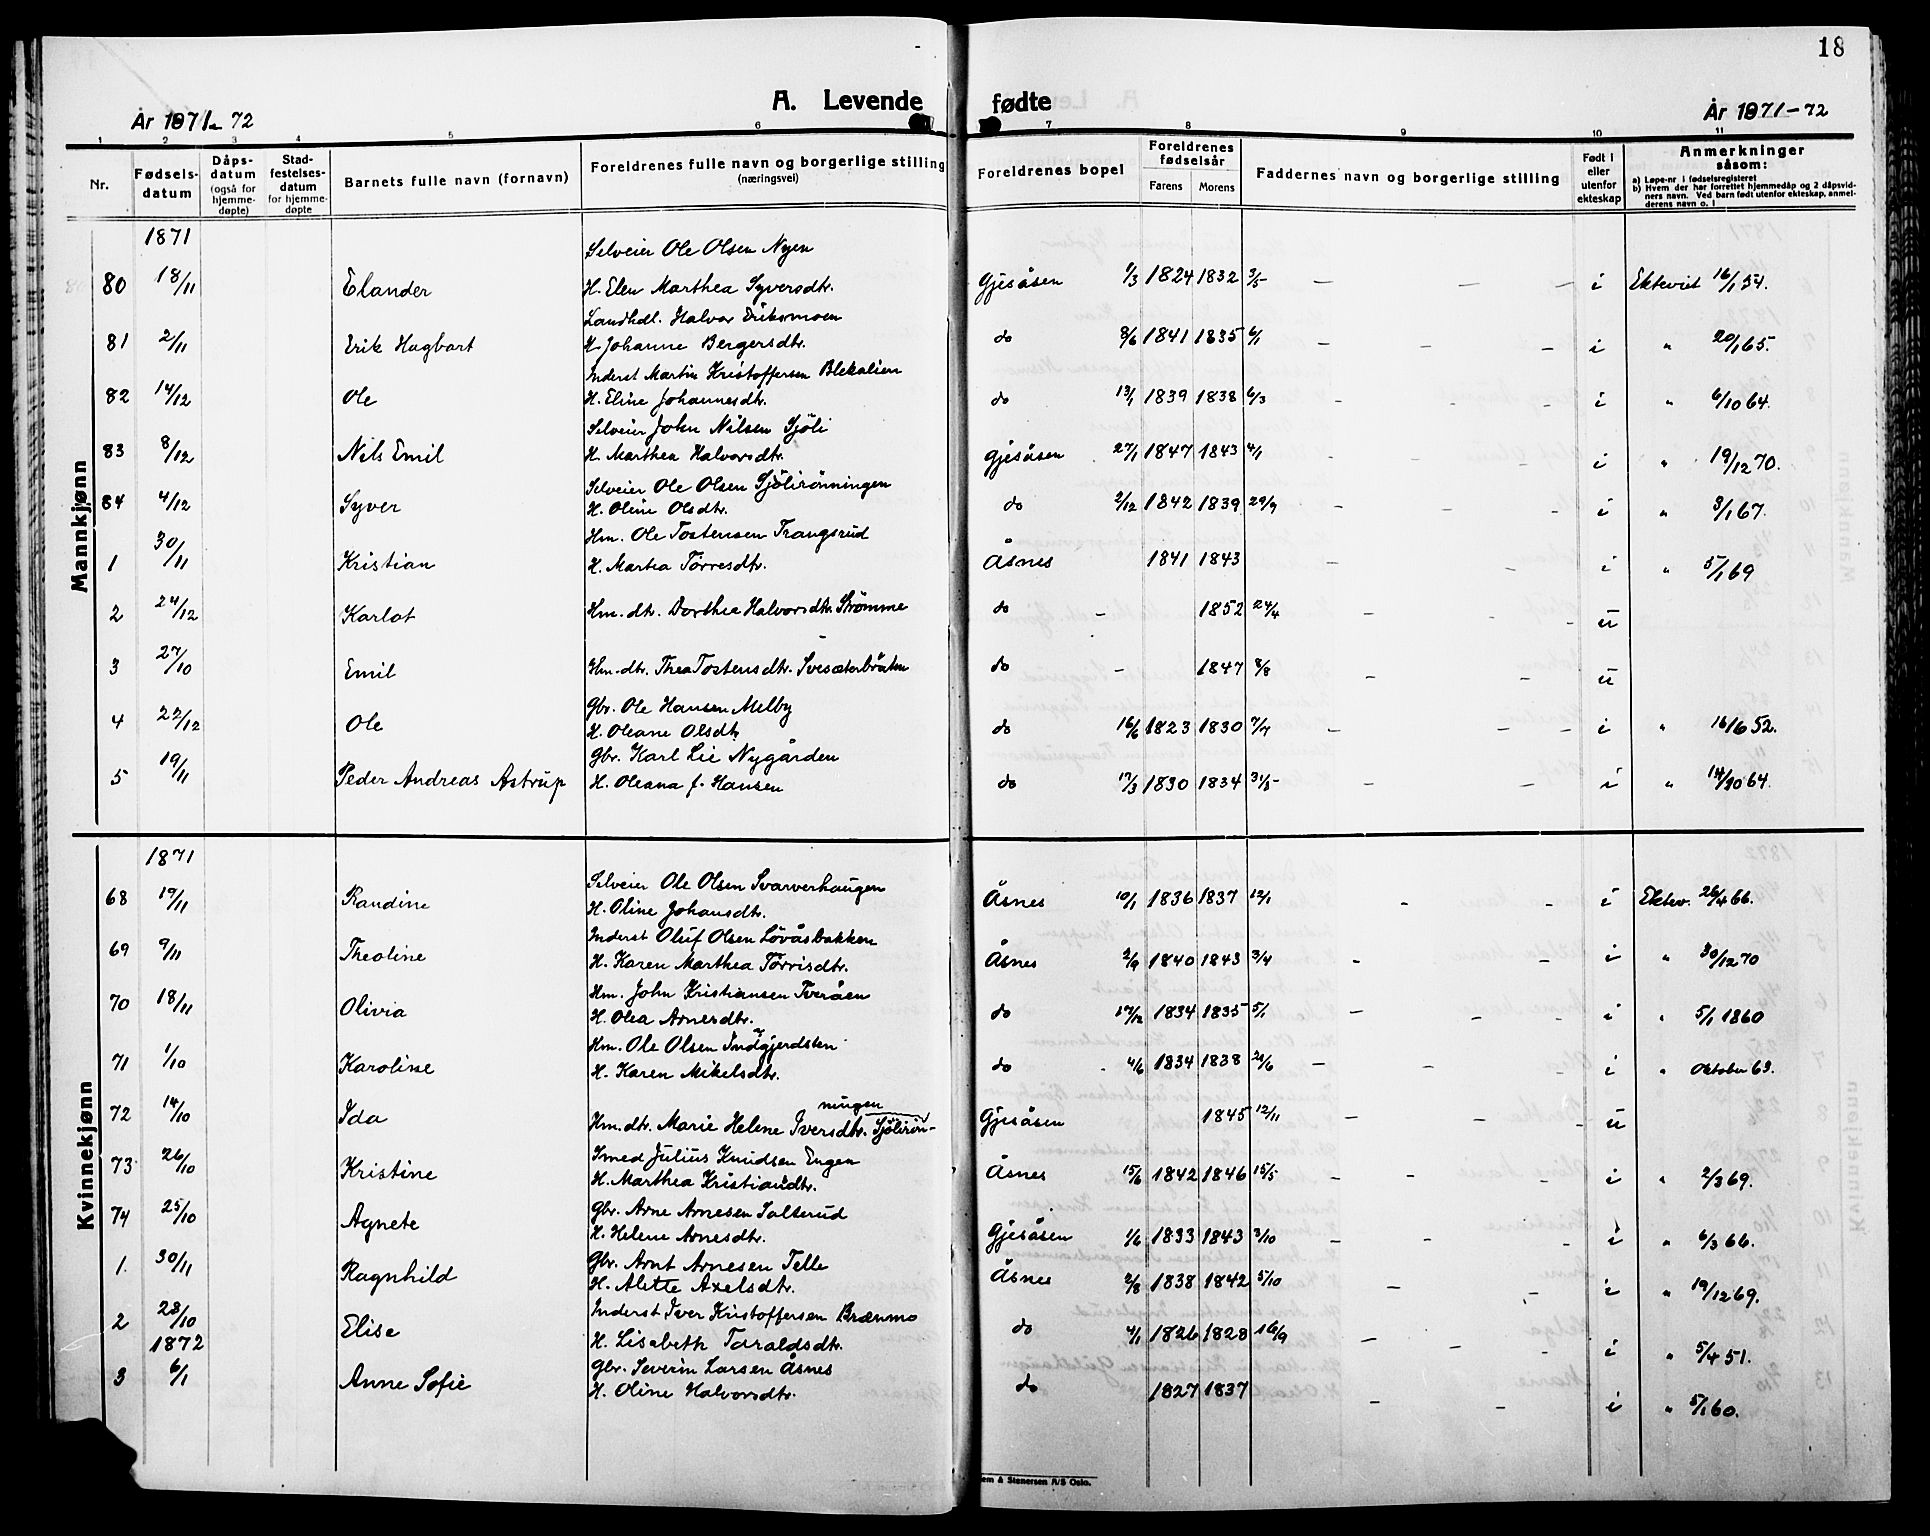 18
A. Levende fødte
År 1871-72
År 1871-72
1 2 3 4 5 6 7 8 9 10 11
Nr. Fødsels-datum Dåps-datum (også for hjemme-døpte) Stad-festelses-datum for hjemme-døpte Barnets fulle navn (fornavn) Foreldrenes fulle navn og borgerlige stilling (næringsvei) Foreldrenes bopel Foreldrenes fødselsår Farens Morens Faddernes navn og borgerlige stilling Født i eller utenfor ekteskap Anmerkninger såsom:
a) Løpe-nr i fødselsregisteret
b) Hvem der har forrettet hjemmedåp og 2 dåpsvidners navn. Ved barn født utenfor ekteskap, anmelderens navn o. l
Mannkjønn
1871
Selveier Ole Olsen Nyen
80 18/11 Elander H. Elen Marthea Syversdtr. Gjesåsen 1/3 1824 1832 3/5 - - - i Ekteviet 16/1 54.
Landhdl. Halvor Eriksmoen
81 2/11 Erik Hagbart H. Johanne Bergersdtr. do 8/6 1841 1835 6/1 - - - i " 20/1 65.
Inderst Martin Kristoffersen Blekalien
82 14/12 Ole H. Eline Johannesdtr. do 13/1 1839 1838 6/3 - - - i " 6/10 64.
Selveier John Nilsen Sjöli
83 8/12 Nils Emil H. Marthea Halvorsdtr. Gjesåsen 27/1 1847 1843 4/1 - - - i " 19/12 70.
Selveier Ole Olsen Sjölirönningen
84 4/12 Syver H. Oline Olsdtr. do 2/12 1842 1839 29/9 - - - i " 3/1 67.
Hm. Ole Tostensen Trangsrud
1 30/11 Kristian H. Martea Törresdtr. Åsnes 1841 1843 - - i " 5/1 69
2 24/12 Karlot Hm. dtr. Dorthea Halvorsdtr. Strömme do - 1852 24/4 - - - u
3 27/10 Emil Hm. dtr. Thea Tostensdtr. Svesæterbråten do - 1847 8/8 - - u
Gbr. Ole Hansen Melby
4 22/12 Ole H. Oleane Olsdtr. do 16/6 1823 1830 7/7 - - - i " 16/6 52.
Gbr. Karl Lie Nygården
5 19/11 Peder Andreas Astrup H. Oleana f. Hansen do 17/3 1830 1834 31/5 - - i " 14/20 64.
Kvinnekjønn
1871
Selveier Ole Olsen Svarverhaugen
68 19/11 Randine H. Oline Johansdtr. Åsnes 10/1 1836 1837 12/1 - - i Ektev. 26/4 66.
Inderst Oluf Olsen Lövåsbakken
69 9/11 Theoline H. Karen Marthea Törrisdtr. Åsnes 2/9 1840 1843 3/4 - - i " 30/12 70
Hm. John Kristiansen Tveråen
70 18/11 Olivia H. Olea Arnesdtr. do 17/12 1834 1835 5/1 - - - i " 5/1 1860
Hm. Ole Olsen Indgjerdsten
71 1/10 Karoline H. Karen Mikelsdtr. do 4/6 1834 1838 28/6 - - - i " Oktober 63.
ningen
72 14/10 Ida Hm. dtr. Marie Helene Iversdtr. Sjölirön- Gjesåsen 1845 12/11 - - - u
Smed Julius Knudsen Engen
73 26/10 Kristine H. Marthea Kristiandtr. Åsnes 15/6 1842 1846 15/5 - - - i " 2/3 69.
Gbr. Arne Arnesen Salterud
74 25/10 Agnete H. Helene Arnesdtr. Gjesåsen 1/6 1833 1843 3/10 - - - i " 6/3 66.
Gbr. Arnt Arnesen Telle
1. 30/11 Ragnhild H. Alette Axelsdtr. Åsnes 2/8 1838 1842 5/10 - - i " 19/12 69.
Inderst Iver Kristoffersen Brænmo
2 23/10 Elise H. Lisabeth Taraldsdtr. do 4/1 1826 1828 16/9 - - - i " 5/4 51.
1872
Gbr. Severin Larsen Åsnes
3 6/1 Anne Sofie H. Oline Halvorsdtr. do 1827 1837 - - i " 5/1 60.
em & Stenersen A/S Oslo.